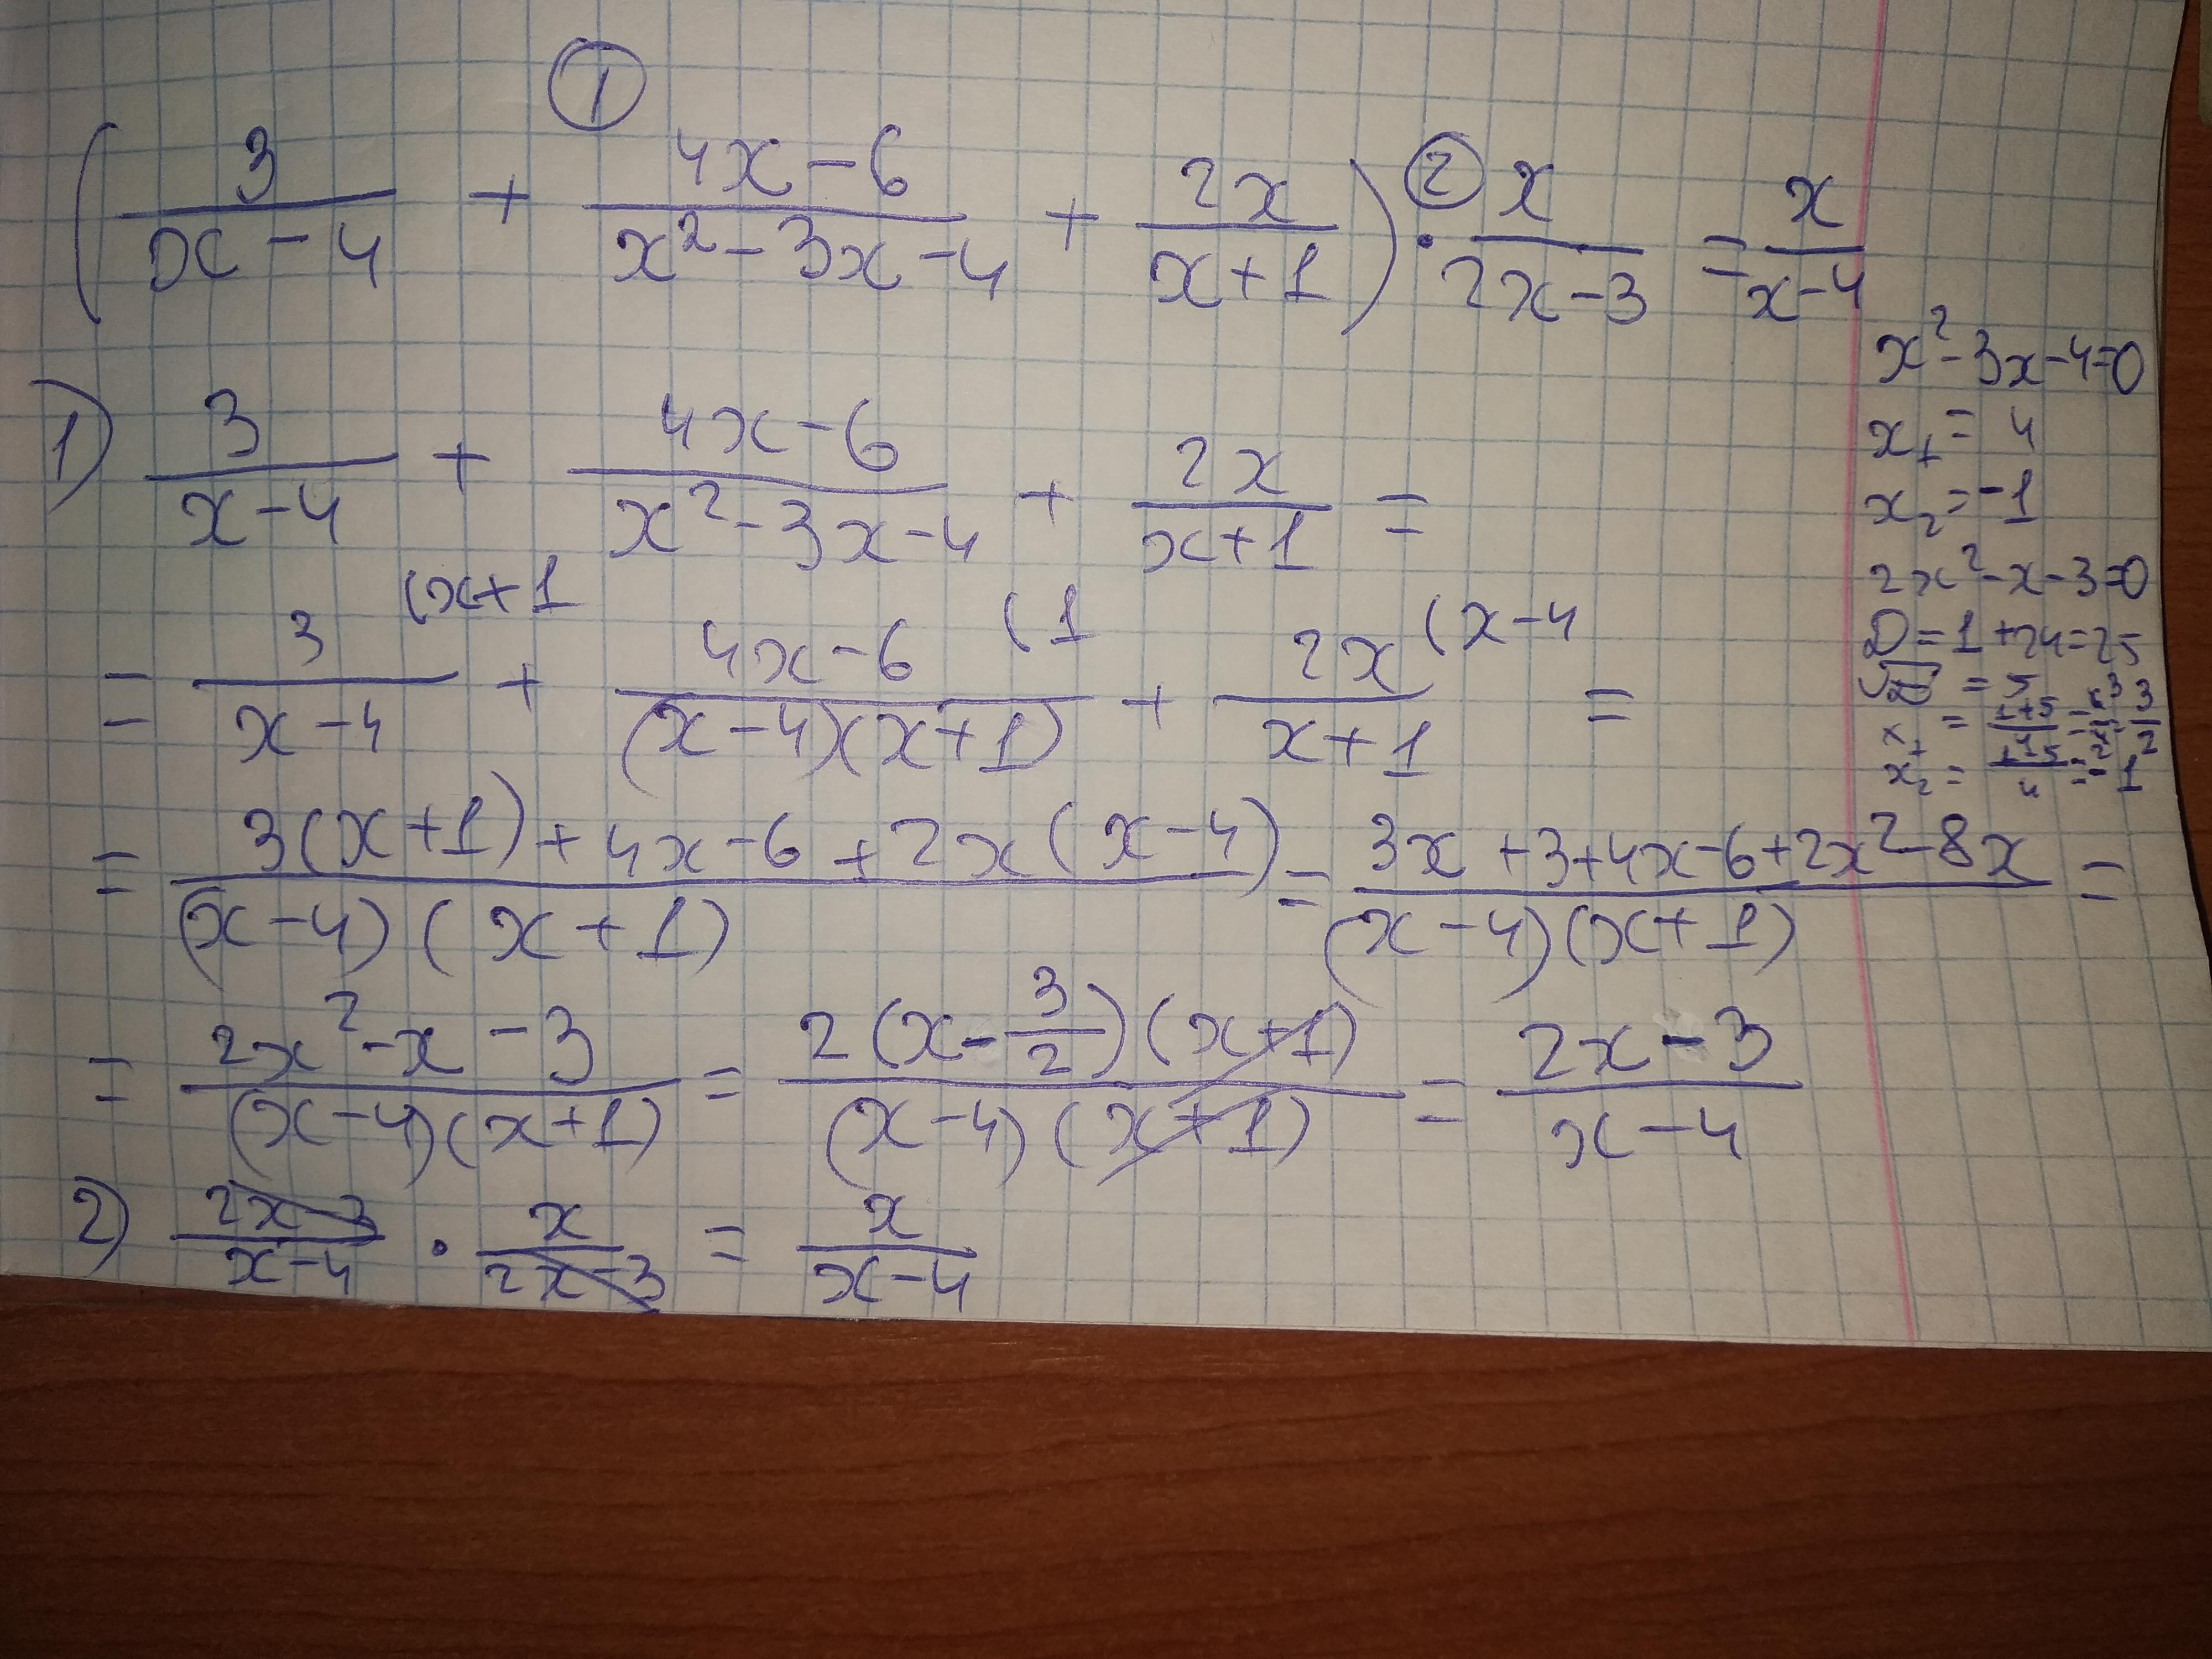 ①
(3/(x-4) + (4x-6)/(x²-3x-4) + 2x/(x+1)) ②· x/(2x-3) = x/(x-4)
x²-3x-4=0
x₁ = 4
x₂ = -1
2x²-x-3=0
D = 1+24=25
√D = 5
x₁ = (1+5)/4 = 6/4 = 3/2
x₂ = (1-5)/4 = -1
1) 3/(x-4) + (4x-6)/(x²-3x-4) + 2x/(x+1) =
= 3/(x-4) (x+1 + (4x-6)/((x-4)(x+1)) (1 + 2x/(x+1) (x-4 =
= (3(x+1)+4x-6+2x(x-4))/((x-4)(x+1)) = (3x+3+4x-6+2x²-8x)/((x-4)(x+1)) =
= (2x²-x-3)/((x-4)(x+1)) = (2(x-3/2)(x+1))/((x-4)(x+1)) = (2x-3)/(x-4)
2) (2x-3)/(x-4) · x/(2x-3) = x/(x-4)